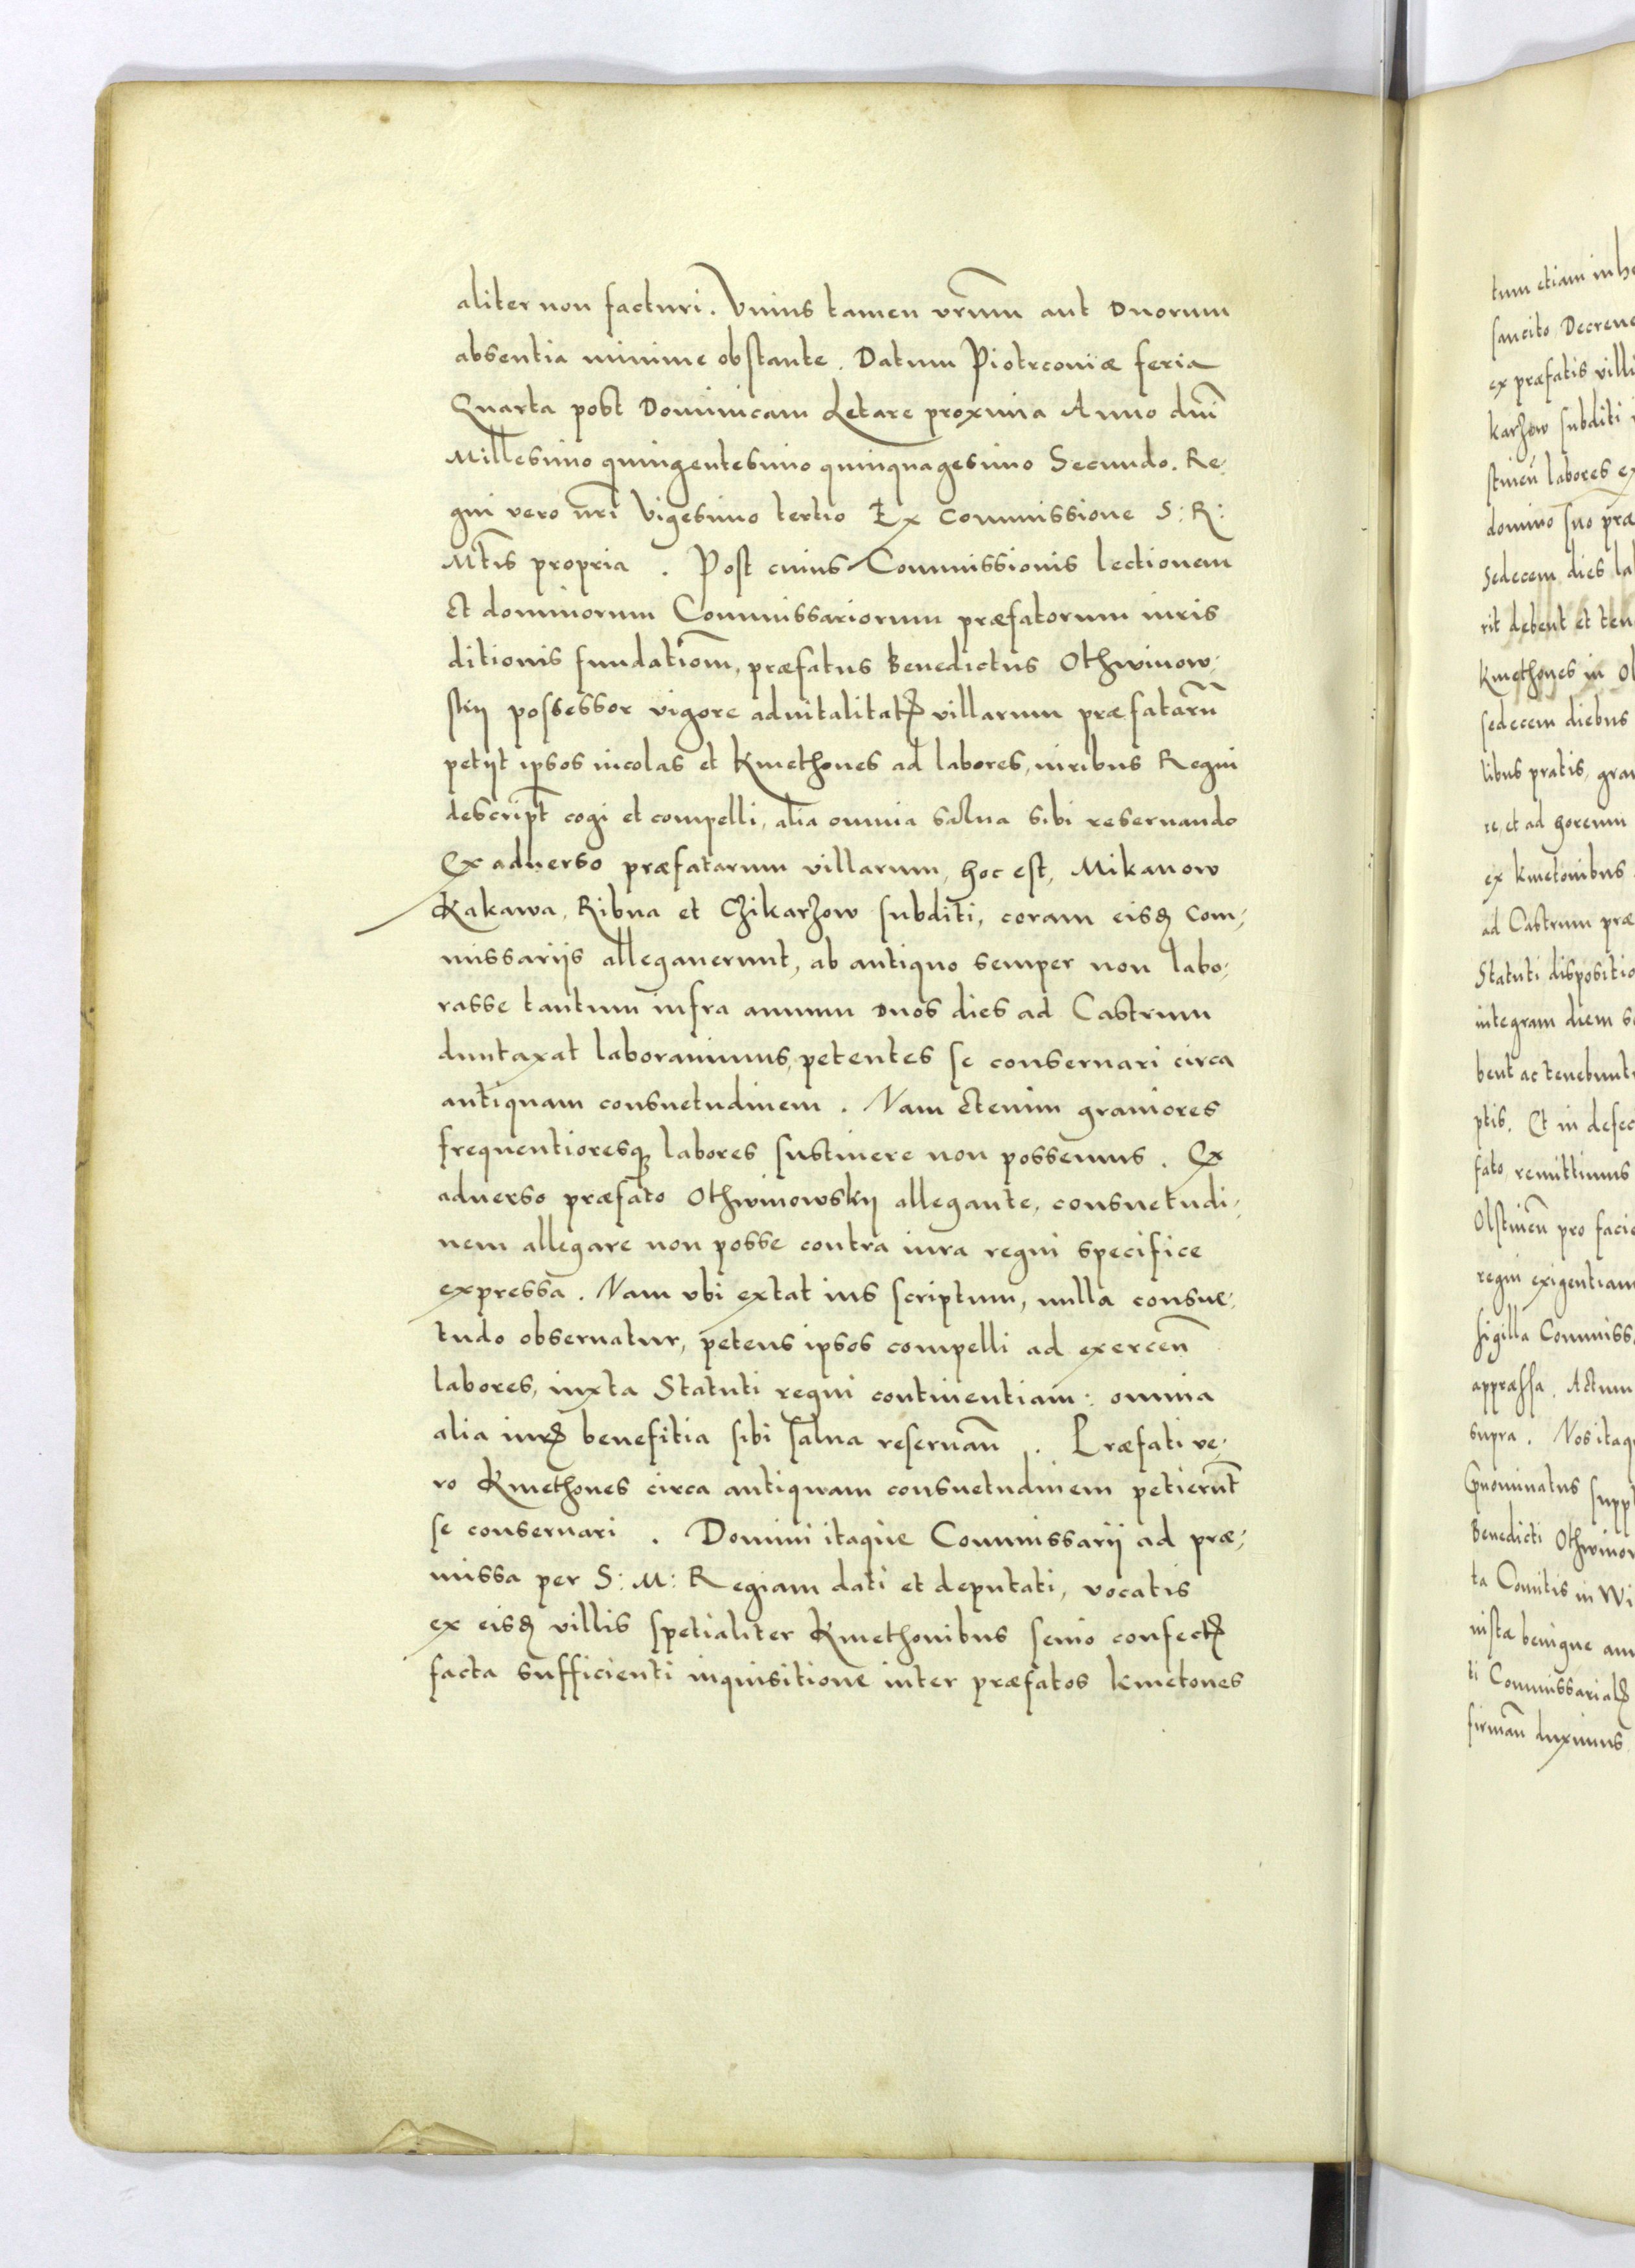 aliter non facturi. Vnius tamen vrūm aut duorum
absentia minime obstante. Datum Piotrconiæ feria
Quarta post Dominicam Letare proxima Anno dnī
Millesimo quingentesimo quinquagesimo Secundo. Re,
gni vero nrī Vigesimo tertio Ex Commissione S: R:
Mtīs propria. Post cuius Commissionis lectionem
et dominorum Commissariorum præfatorum iuris
ditionis fundatiom̄, præfatus Benedictus Othwinow,
skij possessor vigore aduitalitatꝭ villarum præfatarū
petijt ipsos incolas et Kmethones ad labores, iuribus Regni
descript̄ cogi et compelli, alia omnia salua sibi reseruando
Ex aduerso præfatarum villarum, hoc est, Mikanow
Kakawa, Ribna et Czikarzow subditi, coram eisdꝫ Com,
missarijs allegauerunt, ab antiquo semper non labo,
rasse tantum infra annum duos dies ad Castrum
duntaxat laborauimus, petentes se conseruari circa
antiquam consuetudinem. Nam etenim grauiores
frequentioresqꝫ labores sustinere non possemus. Ex
aduerso præfato Othwinowskij allegante, consuetudi,
nem allegare non posse contra iura regni specifice
expressa. Nam vbi extat ius scriptum, nulla consue,
tudo obseruatur, petens ipsos compelli ad exercen̄
labores, iuxta Statuti regni continentiam: omnia
alia iurꝭ benefitia sibi salua reseruan̄. Præfati ve,
ro Kmethones circa antiquam consuetudinem petierūt
se conseruari. Domini itaque Commissarij ad præ,
missa per S: M: Regiam dati et deputati, vocatis
ex eisdꝫ villis spetialiter Kmethonibus senio confectꝭ
facta sufficienti inquisitione inter præfatos kmetones
tum etiam in
sancito, Decreue
ex præfatis villi
karzow subditi
stineū labores ex
domino suo præ
Sedecem dies la
rit debent et ten
Kmethones in Ol
sedecem diebus
libus pratis, gra
re, et ad horeum
ex kmetonibus
ad Castrum præ
Statuti dispositio
integram diem s
bent ac tenebunt
ptis. Et in defec
fato, remittimus
Olstineū pro facie
regni exigentiam
sigilla Commiss
appræssa. Actum
supra. Nos itaq
Benedicti Othwinow
ta Comitis in Wi
iusta benigne an
ti Commissarialꝭ
firman̄ duximus